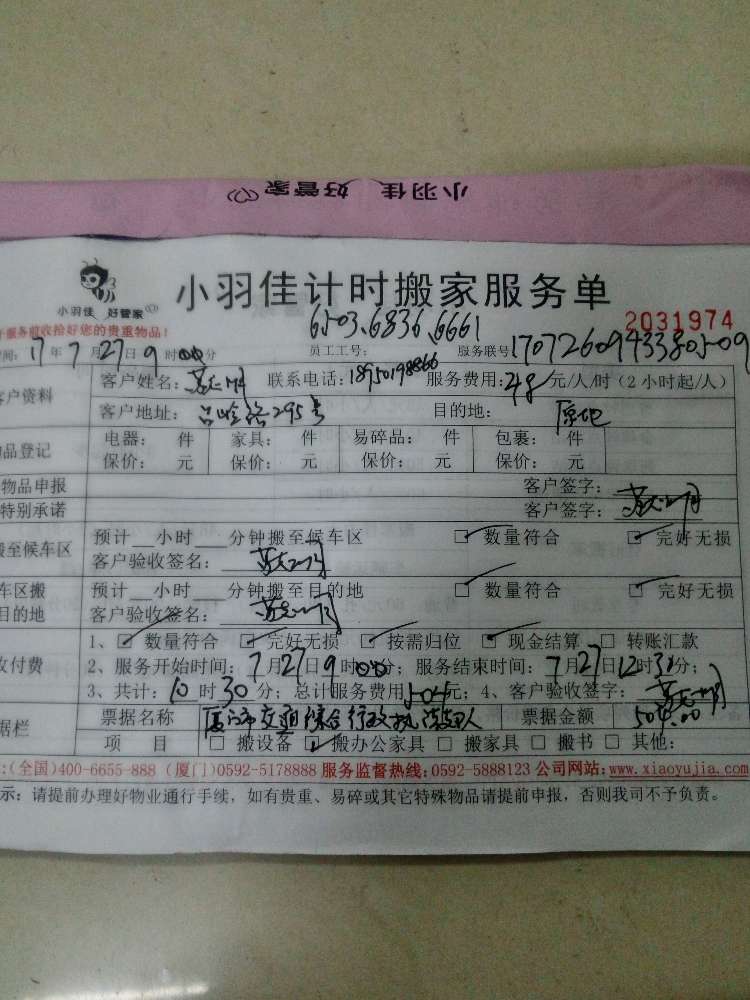 小羽佳 好管家
小羽佳 好管家
小羽佳计时搬家服务单
服务前收拾好您的贵重物品!
6503.6836.6661
2031974
间: 17年7月27日9时00分 员工工号: 服务联号:
客户资料 客户姓名: 联系电话:18950198866 服务费用:48元/人/时(2小时起/人)
客户地址: 吕岭路295号 目的地: 原地
品登记 电器: 件 家具: 件 易碎品: 件 包裹: 件
保价: 元 保价: 元 保价: 元 保价: 元
物品申报 客户签字:
特别承诺 客户签字:
搬至候车区 预计__小时__分钟搬至候车区 数量符合 完好无损
客户验收签名:
车区搬 预计__小时__分钟搬至目的地 数量符合 完好无损
目的地 客户验收签名:
收付费 1、数量符合 完好无损 按需归位 现金结算 转账汇款
2、服务开始时间:7月27日9时00分; 服务结束时间:7月27日12时30分;
3、共计:10时30分; 总计服务费用504元; 4、客户验收签字:
据栏 票据名称 厦门市交通综合行政执法支队 票据金额 504.00
项 目 搬设备 搬办公家具 搬家具 搬书 其他:
:(全国)400-6655-888 (厦门)0592-5178888 服务监督热线:0592-5888123 公司网站:www.xiaoyujia.com
示: 请提前办理好物业通行手续, 如有贵重、易碎或其它特殊物品请提前申报, 否则我司不予负责。